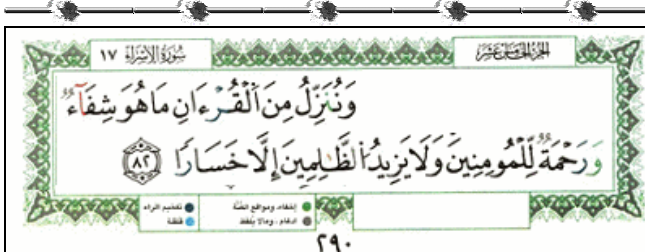 الجزء الخامس عشر
سورة الإسراء ١٧
وَنُنَزِّلُ مِنَ ٱلْقُرْءَانِ مَا هُوَ شِفَآءٌ
وَرَحْمَةٌ لِّلْمُؤْمِنِينَ وَلَا يَزِيدُ ٱلظَّٰلِمِينَ إِلَّا خَسَارًا ٨٢
إخفاء، ومواقع الغنّة
تفخيم الراء
ادغام، ومالا يلفظ
قلقلة
٢٩٠